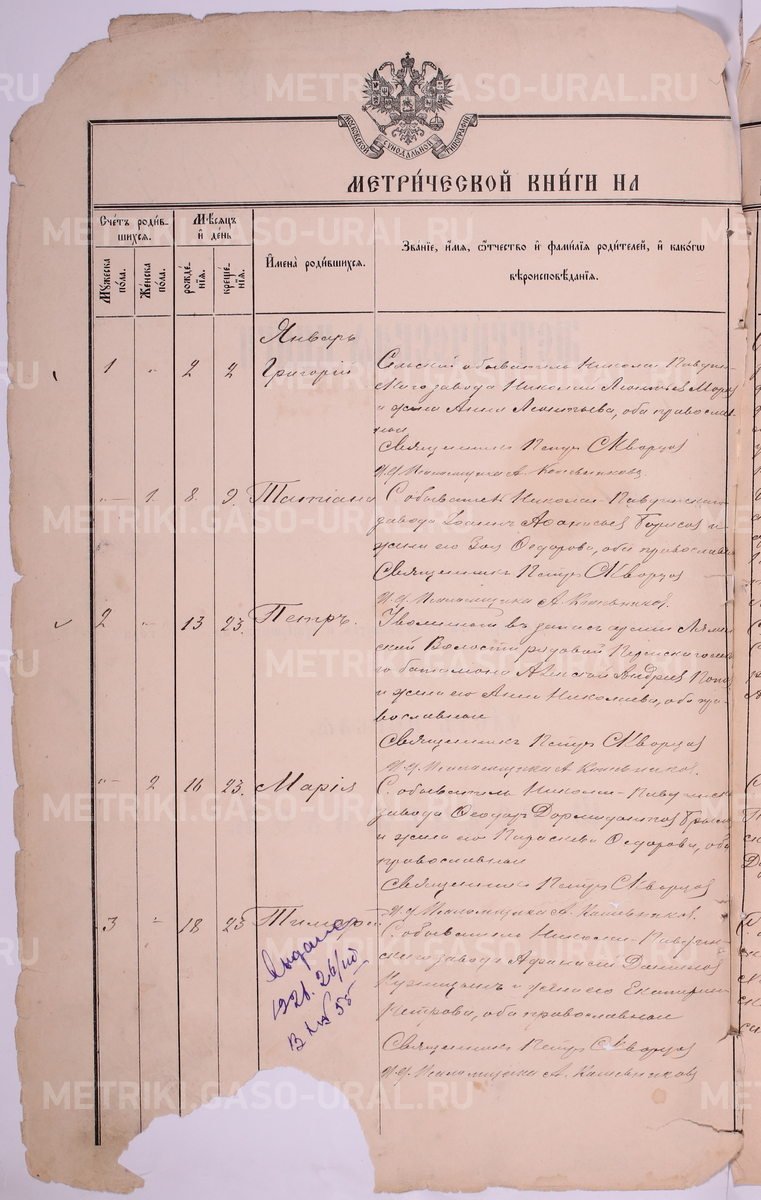 МОСКОВСКОЙ СѴНОДАЛЬНОЙ ТИПОГРАФІИ
МЕТРИ́ЧЕСКОЙ КНИ́ГИ НА
Сче́тъ роди́в-
шихся.
Мѣ́сяцъ
и҆ де́нь
И҆мена̀ роди́вшихся.
Зва́нїе, и҆́мя, ѻ҆́тчество и҆ фами́лїя роди́телей, и҆ како́гѡ
вѣроисповѣ́данїя.
Мꙋ́жеска
по́ла.
Же́нска
по́ла.
рожде́-
нїя.
креще́-
нїя.
Январь
1 " 2 2 Григорій Сельскій обыватель Николае Павдин-
скаго завода Николай Леонтьев
и жена Анна Леонтьева, оба православ-
ные
Священникъ Петръ Скворцов
И. д. Псаломщика А. Кожевников.
" 1. 8. 9. Татіана С. обыватель Николае-Павдинскаго
завода Іоаннъ Афанасьев Борисов и
жена его Зоя Федорова, оба православные
Священникъ Петръ Скворцов
И. д. Псаломщика А. Кожевников.
2 " 13 23. Петръ. Уволенный въ запасъ арміи Лялин-
ской Волости рядовой Пермскаго
батальона Алексей Андреев Попов
и жена его Анна Николаева, оба пра-
вославные
Священникъ Петръ Скворцов
И. д. Псаломщика А. Кожевников.
" 2 16 23. Марія С. обыватель Николае-Павдинск.
завода Феодоръ Дормидонтов
и жена его Параскева Федорова, оба
православные
Священникъ Петръ Скворцов
И. д. Псаломщика А. Кожевников.
3 " 18 23 Тимофей С. обыватель Николае-Павдин-
скаго завода Афанасій Данилов
и жена его Екатерина
Петрова, оба православные
Священникъ Петръ Скворцов
И. д. Псаломщика А. Кожевников
Выдано
192 . 26/
№ 55
METRIKI.GASO-URAL.RU